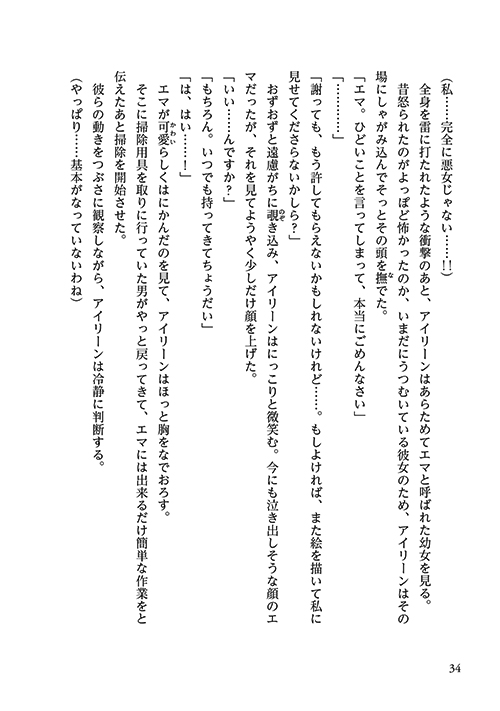 （私……完全に悪女じゃない……!!）
全身を雷に打たれたような衝撃のあと、アイリーンはあらためてエマと呼ばれた幼女を見る。
昔怒られたのがよっぽど怖かったのか、いまだにうつむいている彼女のため、アイリーンはその
場にしゃがみ込んでそっとその頭を撫でた。
「エマ。ひどいことを言ってしまって、本当にごめんなさい」
「…………」
「謝っても、もう許してもらえないかもしれないけれど……。もしよければ、また絵を描いて私に
見せてくださらないかしら？」
おずおずと遠慮がちに覗き込み、アイリーンはにっこりと微笑む。今にも泣き出しそうな顔のエ
マだったが、それを見てようやく少しだけ顔を上げた。
「いい……んですか？」
「もちろん。いつでも持ってきてちょうだい」
「は、はい……！」
エマが可愛らしくはにかんだのを見て、アイリーンはほっと胸をなでおろす。
そこに掃除用具を取りに行っていた男がやっと戻ってきて、エマには出来るだけ簡単な作業をと
伝えたあと掃除を開始させた。
彼らの動きをつぶさに観察しながら、アイリーンは冷静に判断する。
（やっぱり……基本がなっていないわね）
34